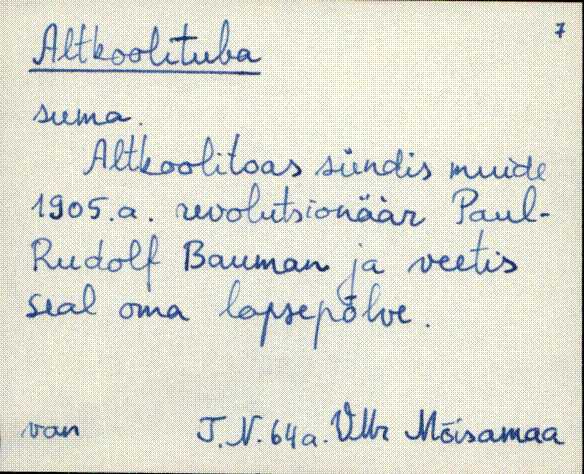 7
Altkoolituba
suma.
Altkoolitoas sündis muide
1905.a. revolutsionäär Paul-
Rudolf Bauman ja veetis
seal oma lapsepõlve.
van J.N. 64a. VMr Mõisamaa